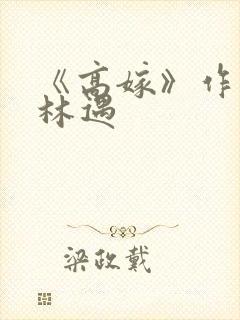 《高嫁》作
林遇
梁政戴